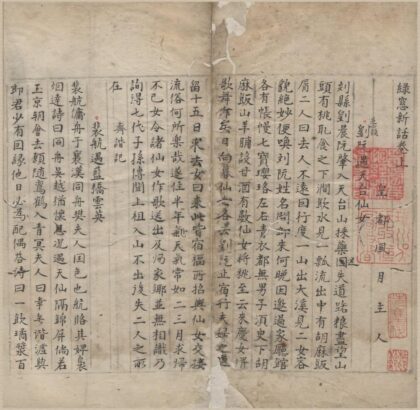 綠窻新話卷上
皇都風月主人
劉阮遇天台仙女
刘縣劉晨阮肇入天台山採藥因失道路粮盡望山
頭有桃取食之下澗飲水見一瓢流出中有胡麻飯
屑二人曰去人不遠因行度一山出大溪見二女容
貌絶妙便喚劉阮姓名問郎來何晚因邀過家廳館
各有帳幔七寶瓔珞左右青衣都無男子湏臾下胡
麻飯山羊脯設甘酒有數仙女將桃至云來慶女婿
歌舞作樂日向暮仙女各云劉阮止宿行夫婦之道
留十五日求去女曰來此皆宿福所招與仙女交接
流俗何所樂哉遂住半年天氣常如二三月求歸
不已女令諸仙女作歌送出及歸家鄉並無相識乃
詢得七代子孫傳聞上祖入山不出後失二人之所
在 齊諧記
裴航遇藍橋雲英
裴航傭舟于襄漢同舟樊夫人國色也航賂其婢裊
烟達詩曰同舟吳越猶懷思况遇天仙隔錦屏倘若
玉京朝會去願隨鸞鶴入青冥夫人曰幸無諧謔與
郎君少有因緣他日必為配偶答詩曰一飲瓊漿百